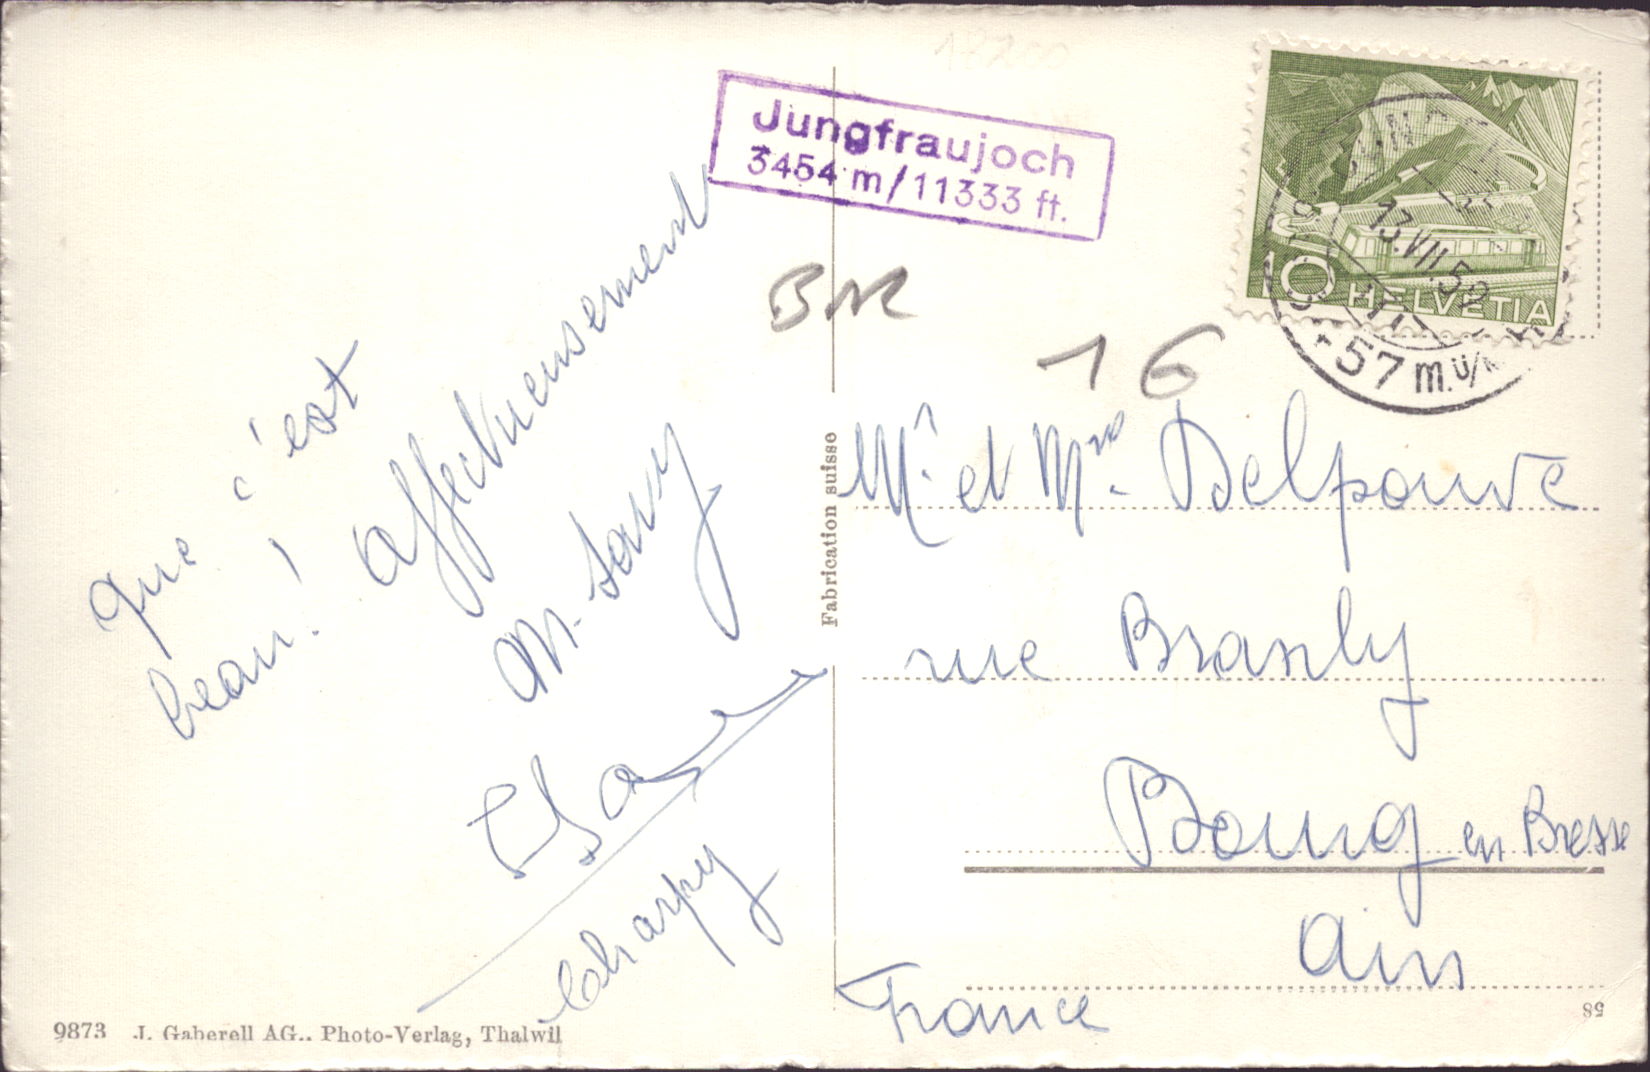 Jungfraujoch
3454 m/11333 ft.
10 HELVETIA
13.VII.52
3457 m.ü/M
BM
16
Que c'est
beau !
affectueusement
M. Savy
Charpy
Fabrication suisse
Mr. et Mme. Delpouve
rue Branly
Bourg en Bresse
Ain
France
9873 J. Gaberell AG.. Photo-Verlag, Thalwil
58